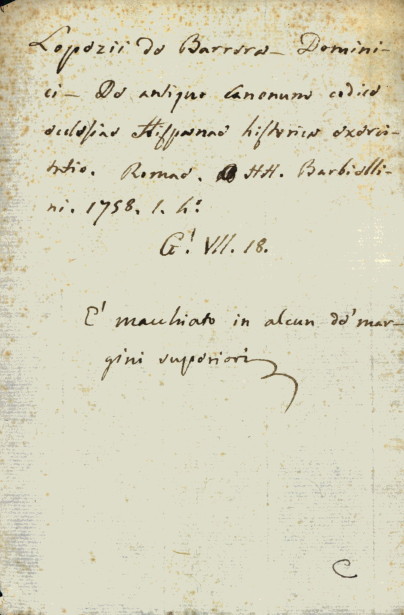 Lopezii de Barrera - Domini-
ci - De antiquo Canonum codice
ecclesiae Hispanae historica exerci-
tatio. Romae. HH. Barbielli-
ni. 1758. 1. h°
G! VII. 18.
E' macchiato in alcun de' mar-
gini superiori
C